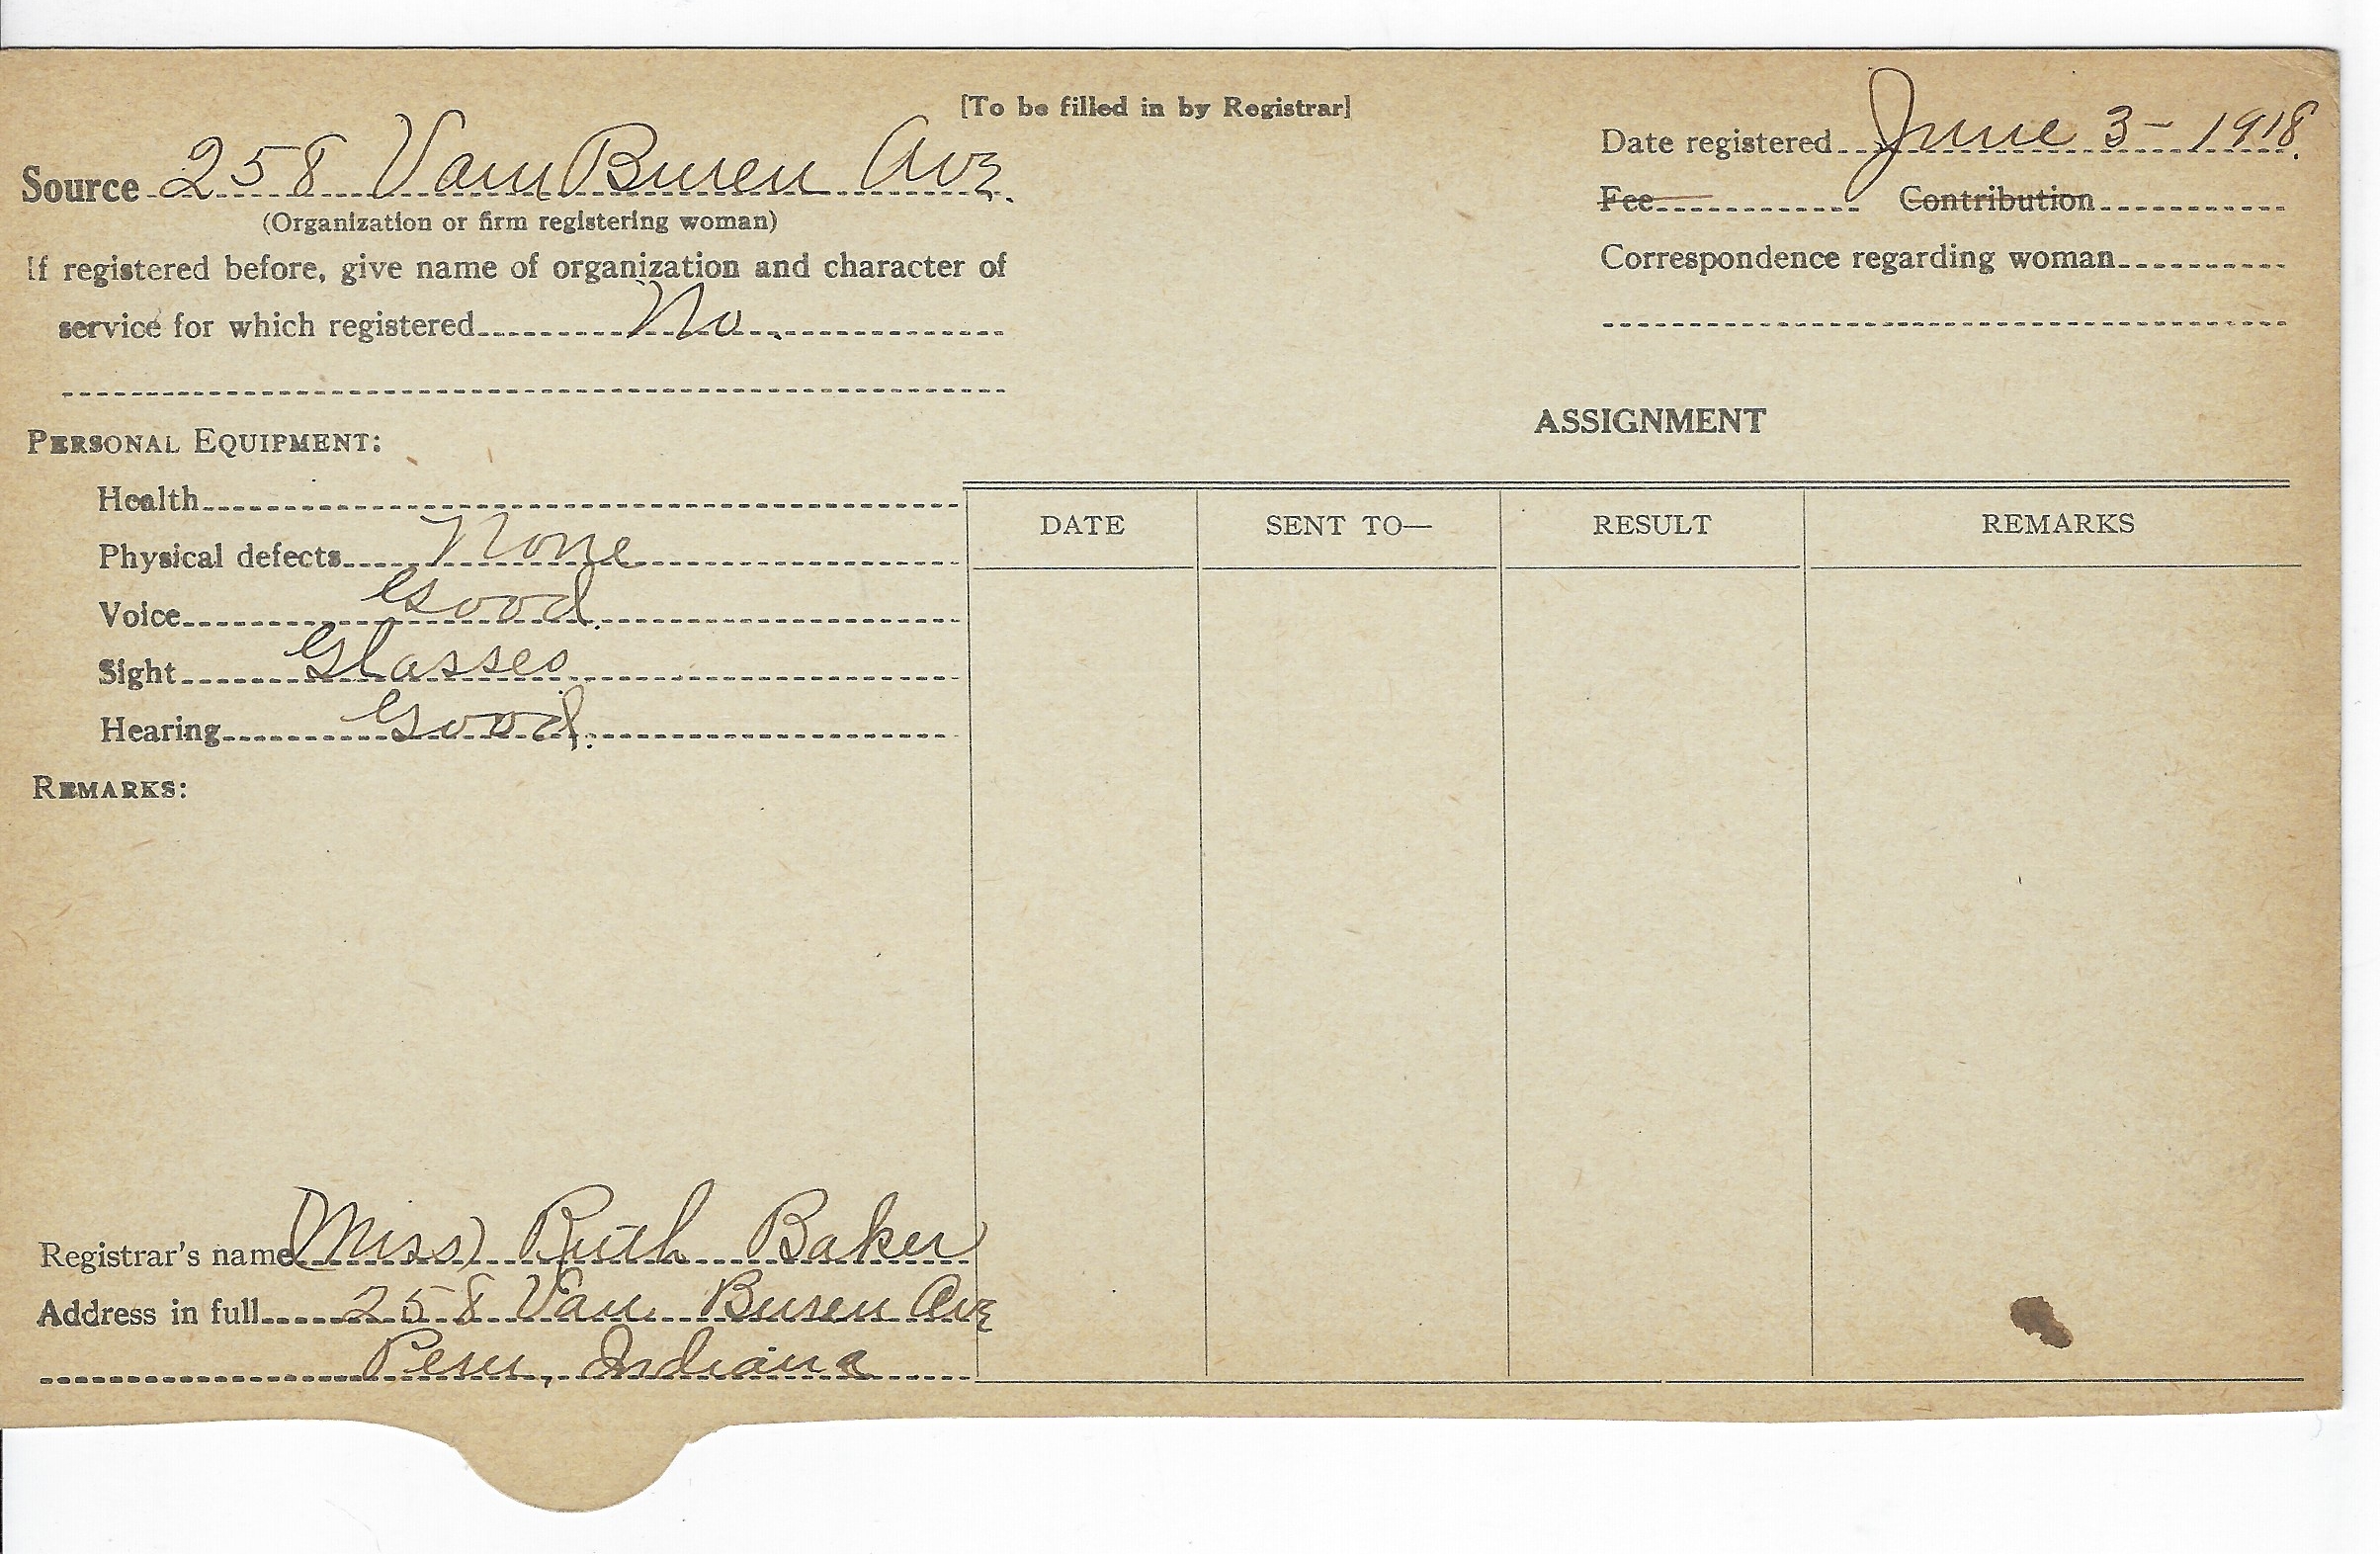 [To be filled in by Registrar]
Source 258 Van Buren Ave.
(Organization or firm registering woman)
If registered before, give name of organization and character of
service for which registered No.
Date registered June 3- 1918.
Fee Contribution
Correspondence regarding woman
PERSONAL EQUIPMENT:
Health
Physical defects None
Voice Good.
Sight Glasses.
Hearing Good.
REMARKS:
Registrar's name (Miss) Ruth Baker
Address in full 258 Van Buren Ave
Peru, Indiana
ASSIGNMENT
DATE SENT TO— RESULT REMARKS